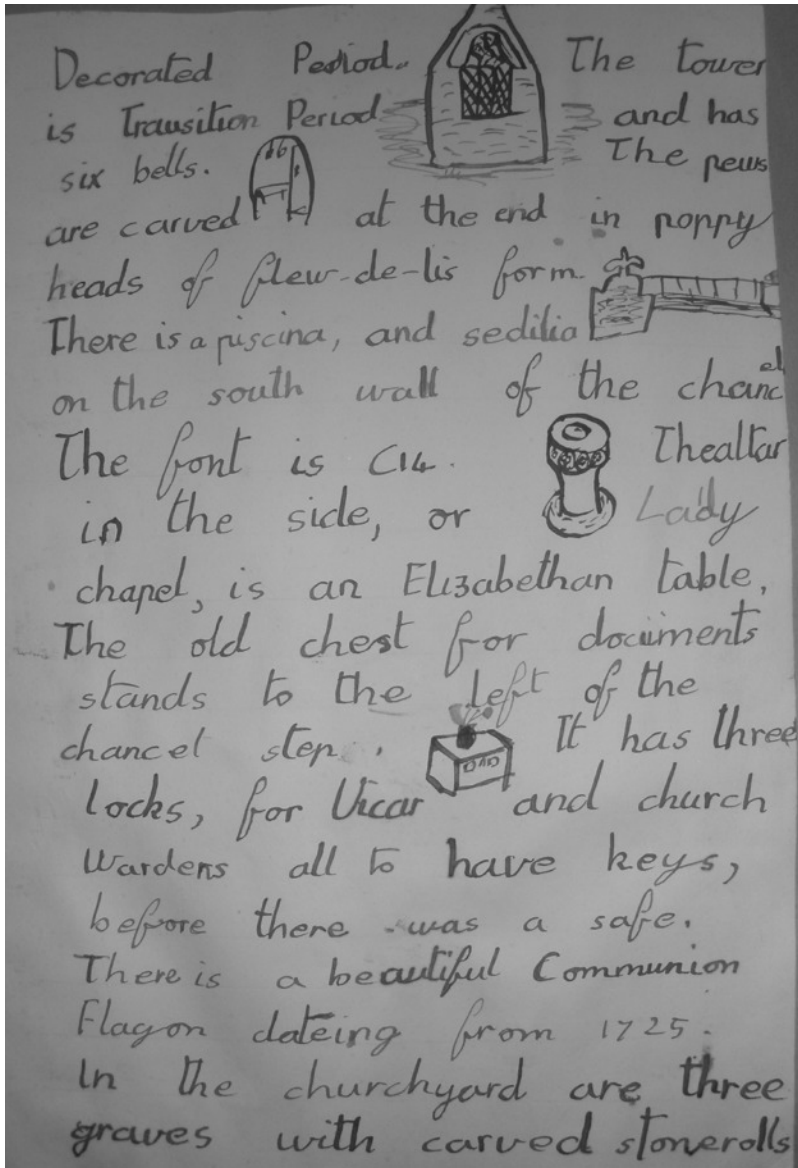 Decorated Period. The tower
is Transition Period and has
six bells. The pews
are carved at the end in poppy
heads of flew-de-lis form.
There is a piscina, and sedilia
on the south wall of the chancel
The font is C14. The altar
in the side, or Lady
chapel, is an Elizabethan table,
The old chest for documents
stands to the left of the
chancel step. It has three
locks, for Vicar and church
Wardens all to have keys,
before there was a safe.
There is a beautiful Communion
Flagon dateing from 1725.
In the churchyard are three
graves with carved stonerolls